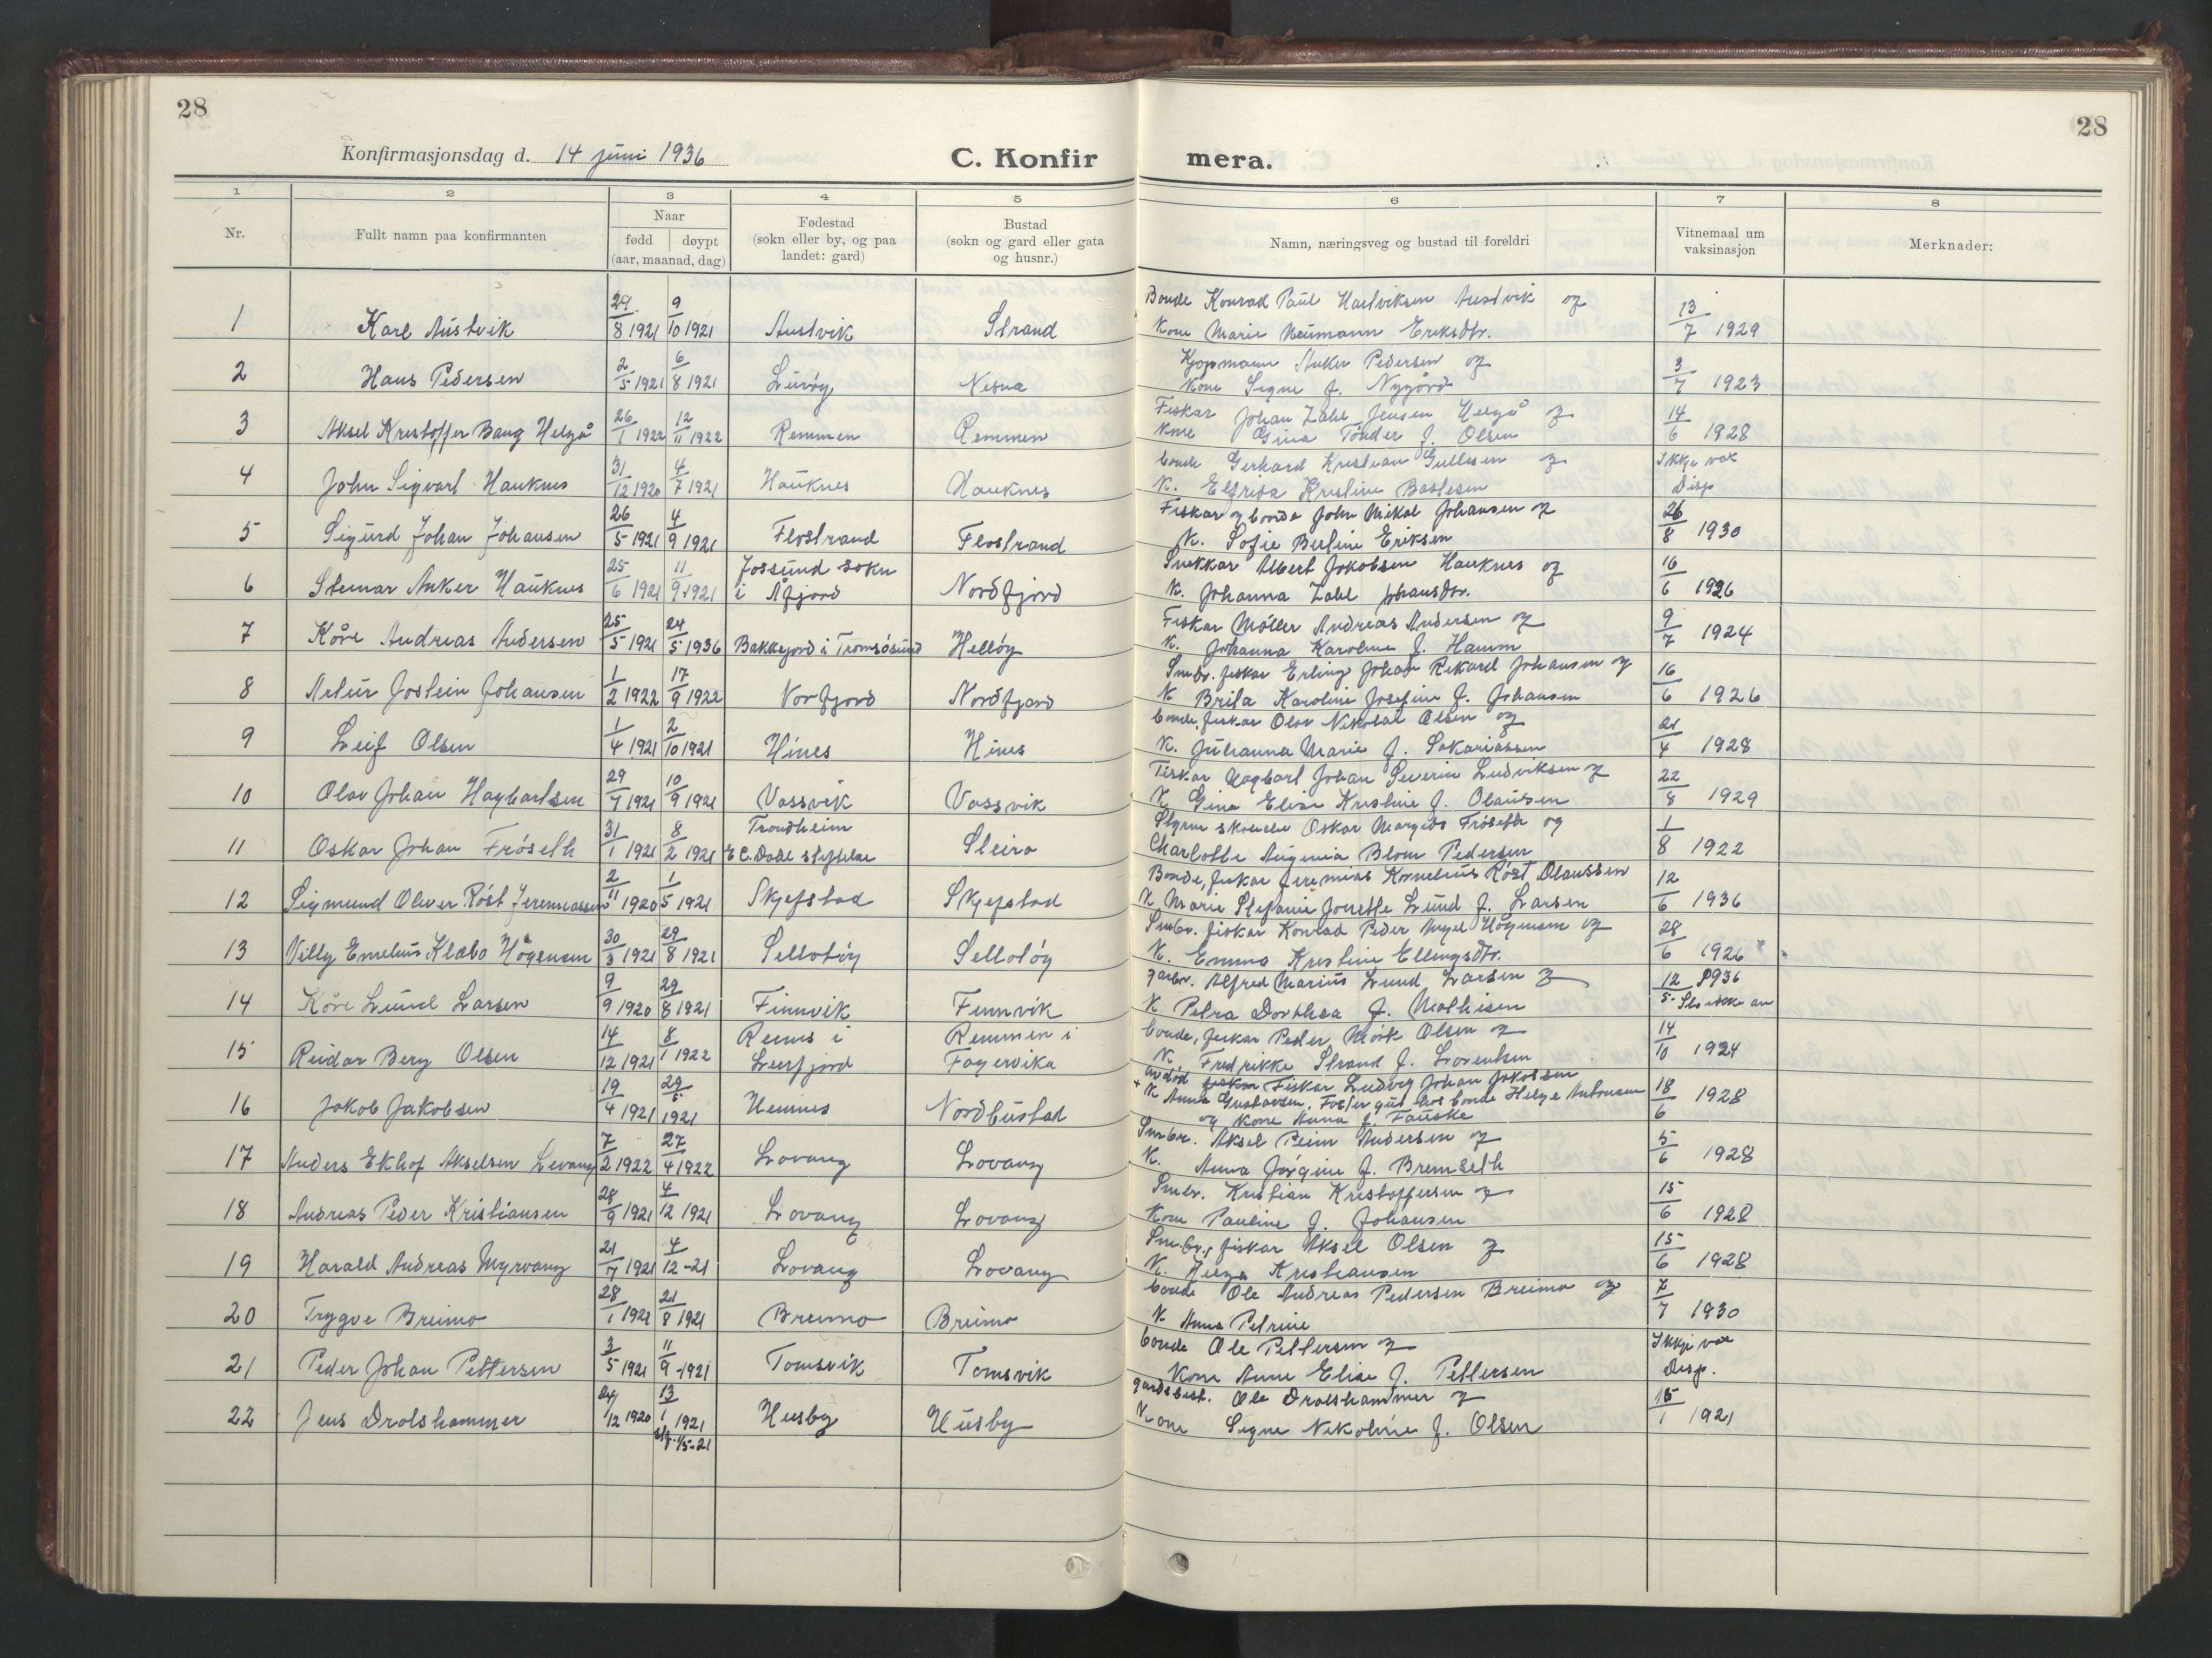 28
28
Konfirmasjonsdag d. 14 juni 1936
C. Konfir mera.
1 2 3 4 5 6 7 8
Nr.
Fullt namn paa konfirmanten
Naar
fødd døypt
(aar, maanad, dag)
Fødestad
(sokn eller by, og paa
landet: gard)
Bustad
(sokn og gard eller gata
og husnr.)
Namn, næringsveg og bustad til foreldri
Vitnemaal um
vaksinasjon
Merknader:
1 Karl Austvik 29/8 1921 9/10 1921 Austvik Strand
Bonde Konrad Paul Hartviksen Austvik og
Kone Marie Neumann Eriksdtr. 13/7 1929
2 Hans Pedersen 2/5 1921 6/8 1921 Lurøy Nesna
Kjøpmann Anker Pedersen og
Kone Signe f. Nygård 3/7 1923
3 Aksel Kristoffer Bang Helgå 26/1 1922 12/11 1922 Remmen Remmen
Fiskar Johan Zahl Jensen Helgå og
Kone Gina Tønder f. Olsen 14/6 1928
4 John Sigvart Hauknes 31/12 1920 4/7 1921 Hauknes Hauknes
bonde Gerhard Kristian Gullesen og
K. Elfrida Kristine Bastesen Ikkje vax
Disp
5 Sigurd Johan Johansen 26/5 1921 4/9 1921 Flostrand Flostrand
Fiskar og bonde John Mikal Johansen og
K. Sofie Berline Eriksen 26/8 1930
6 Steinar Anker Hauknes 25/6 1921 11/9 1921 Jossund sokn
i Åfjord Nordfjord
Snekkar Albert Jakobsen Hauknes og
K. Johanna Zahl Johansdtr. 16/6 1926
7 Kåre Andreas Andersen 25/5 1921 24/5 1936 Bakkejord i Tromsøsund Helløy
Fiskar Møller Andreas Andersen og
K. Johanna Karoline f. Hamm 9/7 1924
8 Artur Jostein Johansen 1/2 1922 17/9 1922 Norfjord Nordfjord
Smbr. fiskar Erling Johan Rikard Johansen og
K Brita Karoline Josefine f. Johansen 16/6 1926
9 Leif Olsen 1/4 1921 2/10 1921 Hines Hines
bonde, fiskar Olov Nikolai Olsen og
K. Julianna Marie f. Sakariassen 21/4 1928
10 Olav Johan Hagbartsen 29/7 1921 10/9 1921 Vassvik Vassvik
Fiskar Hagbart Johan Severin Ludviksen og
K Gina Elise Kristine f. Olaussen 22/8 1929
11 Oskar Johan Frøseth 31/1 1921 8/2 1921 Trondheim
E C. Dahl stiftelse Sleira
Oskar Margido Frøseth og
Charlotte Augenia Blom Pedersen 1/8 1922
12 Sigmund Oliver Røst Jeremiassen 2/11 1920 1/5 1921 Skjefstad Skjefstad
Bonde, fiskar Jeremias Kornelius Røst Olaussen
K Marie Stefanie Jonette Lund f. Larsen 12/6 1936
13 Villy Emelius Klæbo Høgensen 30/3 1921 29/8 1921 Selløtøy Selløtøy
Smbr. fiskar Konrad Peder Høgensen og
K. Emma Kristine Ellingsdtr. 28/6 1926
14 Kåre Lund Larsen 9/9 1920 29/8 1921 Finnvik Finnvik
garbr. Alfred Marius Lund Larsen og
K Petra Dorthea f. Mathisen 12/5 1936
Slo ikke an
15 Reidar Berg Olsen 14/12 1921 8/1 1922 Remms i
Leirfjord Remmen i
Fagervika
bonde, fiskar Peder Mørk Olsen og
K Fredrikke Strand f. Lorentsen 14/10 1924
16 Jakob Jakobsen 19/4 1921 29/5 1921 Hemnes Nordbustad
avdød Fiskar Ludvig Johan Jakobsen
+ K Anna Gustavsen. Fosfergut hos bonde Helge Antonsen
og Kone Anna f. Fauske 18/6 1928
17 Anders Ekhof Akselsen Levang 7/2 1922 27/4 1922 Lovang Lovang
Smbr. Aksel Peim Andersen og
K. Anna Jørgine f. Bremseth 5/6 1928
18 Andreas Peder Kristiansen 28/9 1921 4/12 1921 Lovang Lovang
Smbr. Kristian Kristoffersen og
Kone Pauline f. Johansen 15/6 1928
19 Harald Andreas Myrvang 21/7 1921 4/12-21 Lovang Lovang
Smbr., fiskar Aksel Olsen og
K. Helga Kristiansen 15/6 1928
20 Trygve Breimo 28/1 1921 21/8 1921 Breimo Breimo
bonde Ole Andreas Pedersen Breimo og
K Anna Petrine 7/7 1930
21 Peder Johan Pettersen 3/5 1921 11/9-1921 Tomsvik Tomsvik
bonde Ole Pettersen og
Kone Anne Elise f. Pettersen Ikkje vax
Disp.
22 Jens Drolshammer 24/12 1920 13/1 1921 Husby Husby
gardsbest. Ole Drolshammer og
Kone Signe Nikoline f. Olsen 15/1 1921
1/5-21